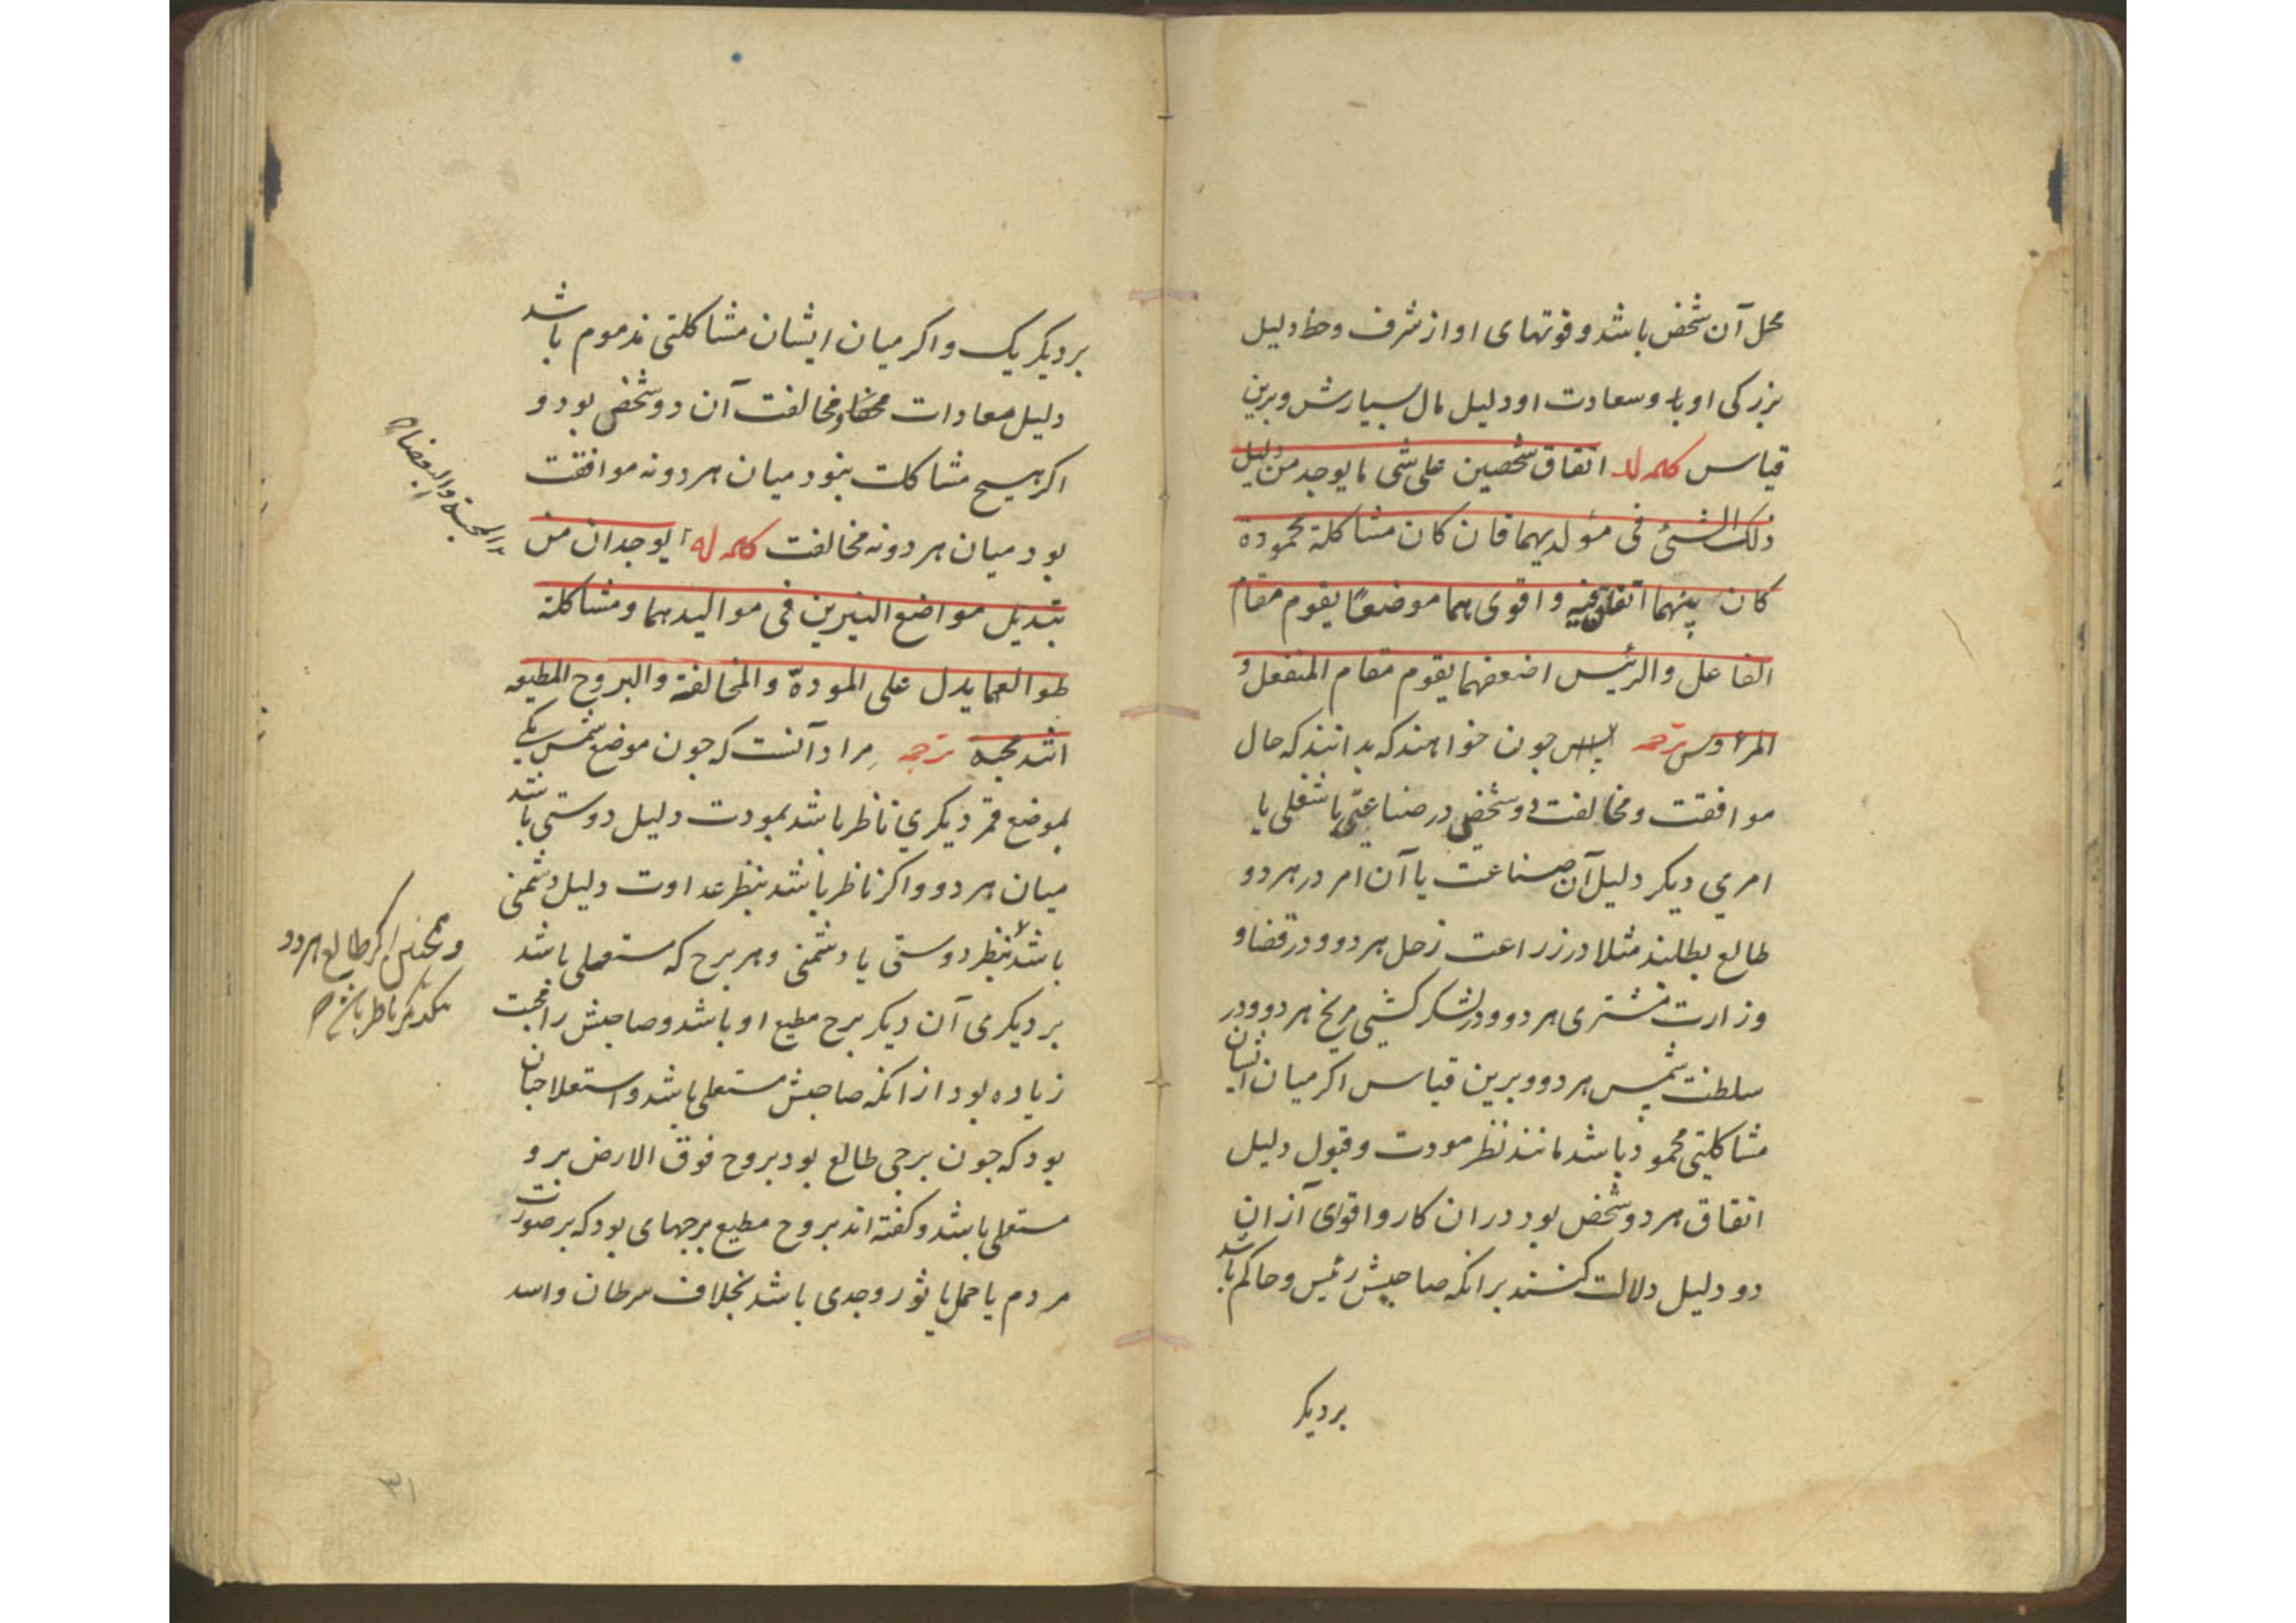 محل آن شخص باشد و قوتهای او از شرف و حظ دلیل
بزرکی او با وسعادت او دلیل مال بسیارش وبرین
قیاس کلمه لد اتفاق شخصین علی شی ما یوجد من دلیل
ذلک الشئ فی مولدیهما فان کان مشاکلة محمودة
کان بینهما اتفاق فیه و اقوی هما موضعا یقوم مقام
الفاعل والرئیس اضعفهما یقوم مقام المنفعل و
المرءوس ترجمه جون خواهند که بدانند که حال
موافقت و مخالفت دو شخص در صناعتی یا شغلی یا
امری دیکر دلیل آن صناعت یا آن امر در هر دو
طالع بطلبند مثلا در زراعت زحل هر دو و در قضا و
وزارت مشتری هر دو و در لشکر کشی مریخ هر دو و در
سلطنت شمس هر دو و برین قیاس اکر میان ایشان
مشاکلتی محمود باشد مانند نظر مودت و قبول دلیل
اتفاق هر دو شخص بود در ان کار و اقوای آز ان
دو دلیل دلالت کنند بر انکه صاحبش رئیس و حاکم باشد
بر دیکر
بر دیکر یک و اکر میان ایشان مشاکلتی مذموم باشد
دلیل معادات و مخالفت آن دو شخص بود و
اکر هیچ مشاکلت نبود میان هر دو نه موافقت
بود میان هر دو نه مخالفت کلمه له یوجدان من
المحبة والبغضاء
تبدیل مواضع النیرین فی موالیدهما ومشاکلة
طوالعهما یدل علی المودة والمخالفة والبروج المطیعه
اشد محبه ترجمه مراد آنست که جون موضع شمس یکی
بموضع قمر دیکری ناظر باشد بمودت دلیل دوستی باشد
میان هر دو و اکر ناظر باشد بنظر عداوت دلیل دشمنی
باشد بنظر دوستی یا دشمنی و هر برج که مستعلی باشد
و همجنین اکر طالع هر دو
بیکدیکر ناظر باشد
بر دیکری آن دیکر برج مطیع او باشد و صاحبش را محبت
زیاده بود از انکه صاحبش مستعلی باشد و استعلا جنان
بود که جون برجی طالع بود بروج فوق الارض بر و
مستعلی باشد و کفته اند بروج مطیع برجهای بود که بر صورت
مردم یا حمل یا ثور و جدی باشد بخلاف سرطان و اسد
۳۱